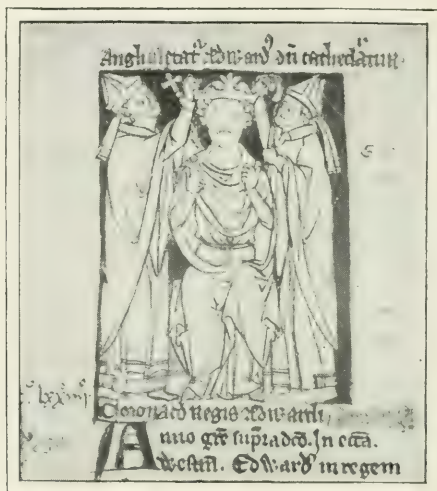 Anglia letat᷑ Edward᷒ dū cathedᷓtur
s
lxxiiii
Coronacō Regis Edwardi.
Anno grē sup̄radcō. In eccā.
Westm̄. Edward᷒ in regem